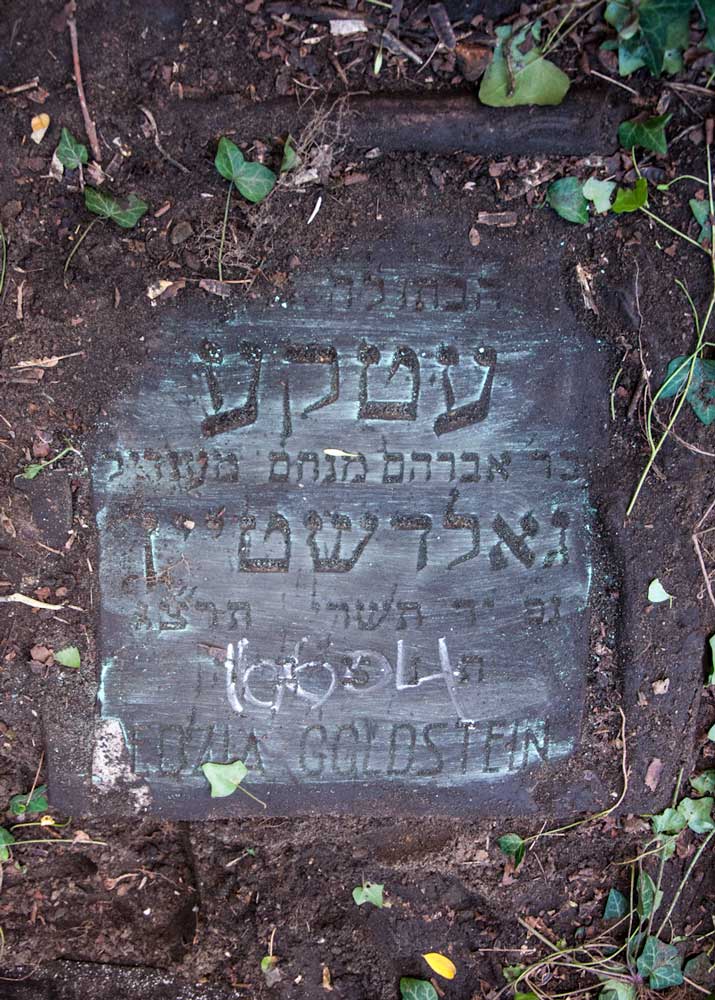 הבתולה
עטקע
בר' אברהם מנחם
גאלדשטיין
נפ' יד תשרי תרצג
תנצ
10604
EDZIA GOLDSTEIN